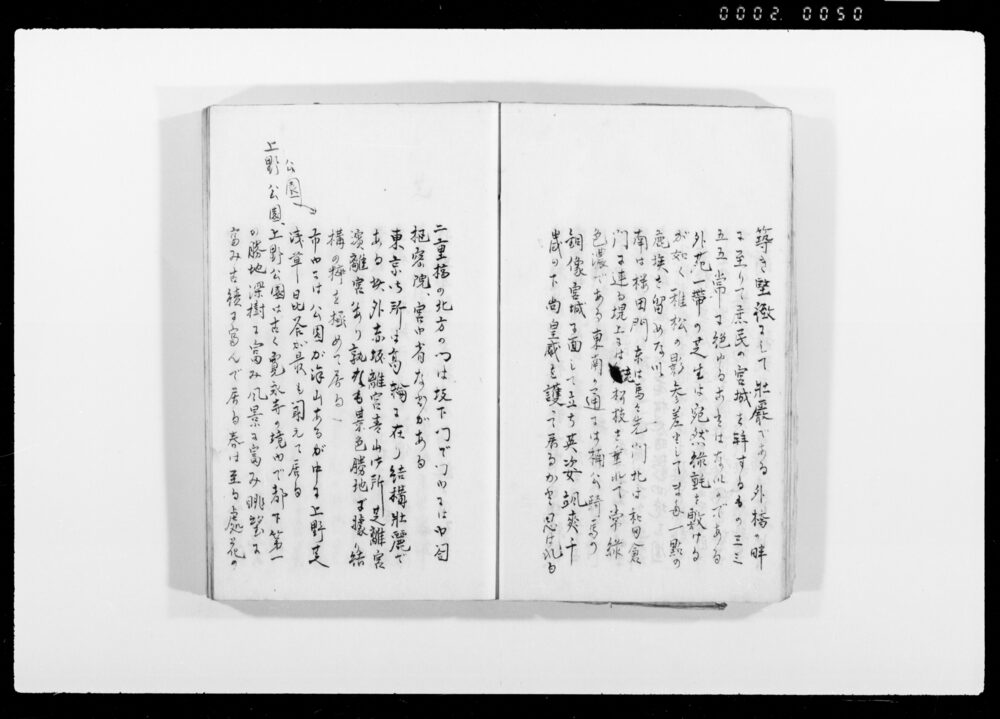 0002 0050
築き堅緻にして壮嚴である外橋の畔
に至りて庶民の宮城を拝するもの三三
五五常に絶ゆることはないのである
外苑一帯の芝生は宛然緑氈を敷ける
が如く稚松の影参差として一点の
塵埃を留めない
南は桜田門東は馬場先門北は和田倉
門に連る堤上には老松枝を垂れて常緑
色濃である東南の通には楠公騎馬の
銅像宮城に面して立ち英姿颯爽千
歳の下尚皇威を護って居るかと思はれる
二重橋の北方の門は坂下門で門内には内閣
枢密院、宮内省などがある
東京御所は高輪に在り結構壮麗で
ある其外赤坂離宮青山御所芝離宮
濱離宮あり孰れも景色勝地に據り結
構の粋を極めて居る
公園
市内には公園が沢山あるが中に上野芝
浅草日比谷が最も聞えて居る
上野公園、上野公園は古く寛永寺の境内で都下第一
の勝地深樹に富み風景に富み眺望に
富み古績に富んで居る春は至る處花の